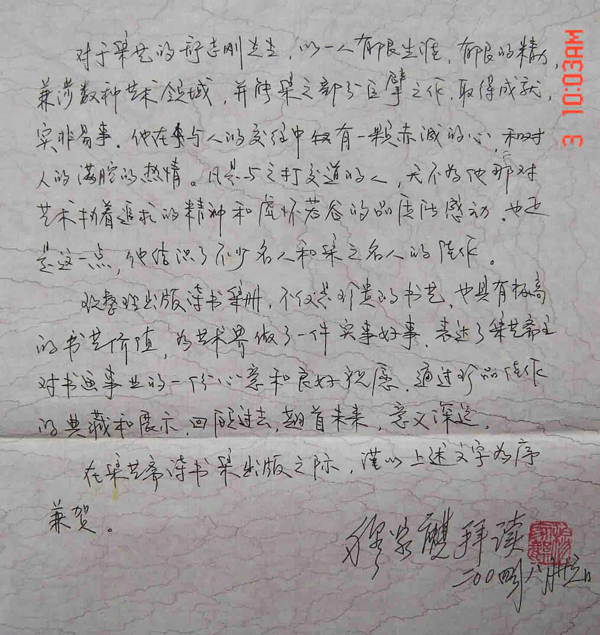 对于集艺的舒志刚先生，以一人有限生涯，有限的精力，
兼涉数种艺术领域，并能集之部分巨擘之作，取得成就，
实非易事。他在与人的交往中以有一颗赤诚的心，和对
人的满腔的热情。凡是与之打交道的人，无不为他那对
艺术执着追求的精神和虚怀若谷的品质所感动。也正
是这一点，他结识了不少名人和集之名人的佳作。
收整理出版诗书集册，不仅是珍贵的书艺，也具有极高
的书艺价值，为艺术界做了一件实事好事，表达了集艺斋主
对书画事业的一个心意和良好祝愿。通过珍品佳作
的典藏和展示，回顾过去，翘首未来，意义深远。
在集艺斋诗书集出版之际，谨以上述文字为序
兼贺。
麒拜读
二00四年八月
3 10:03AM